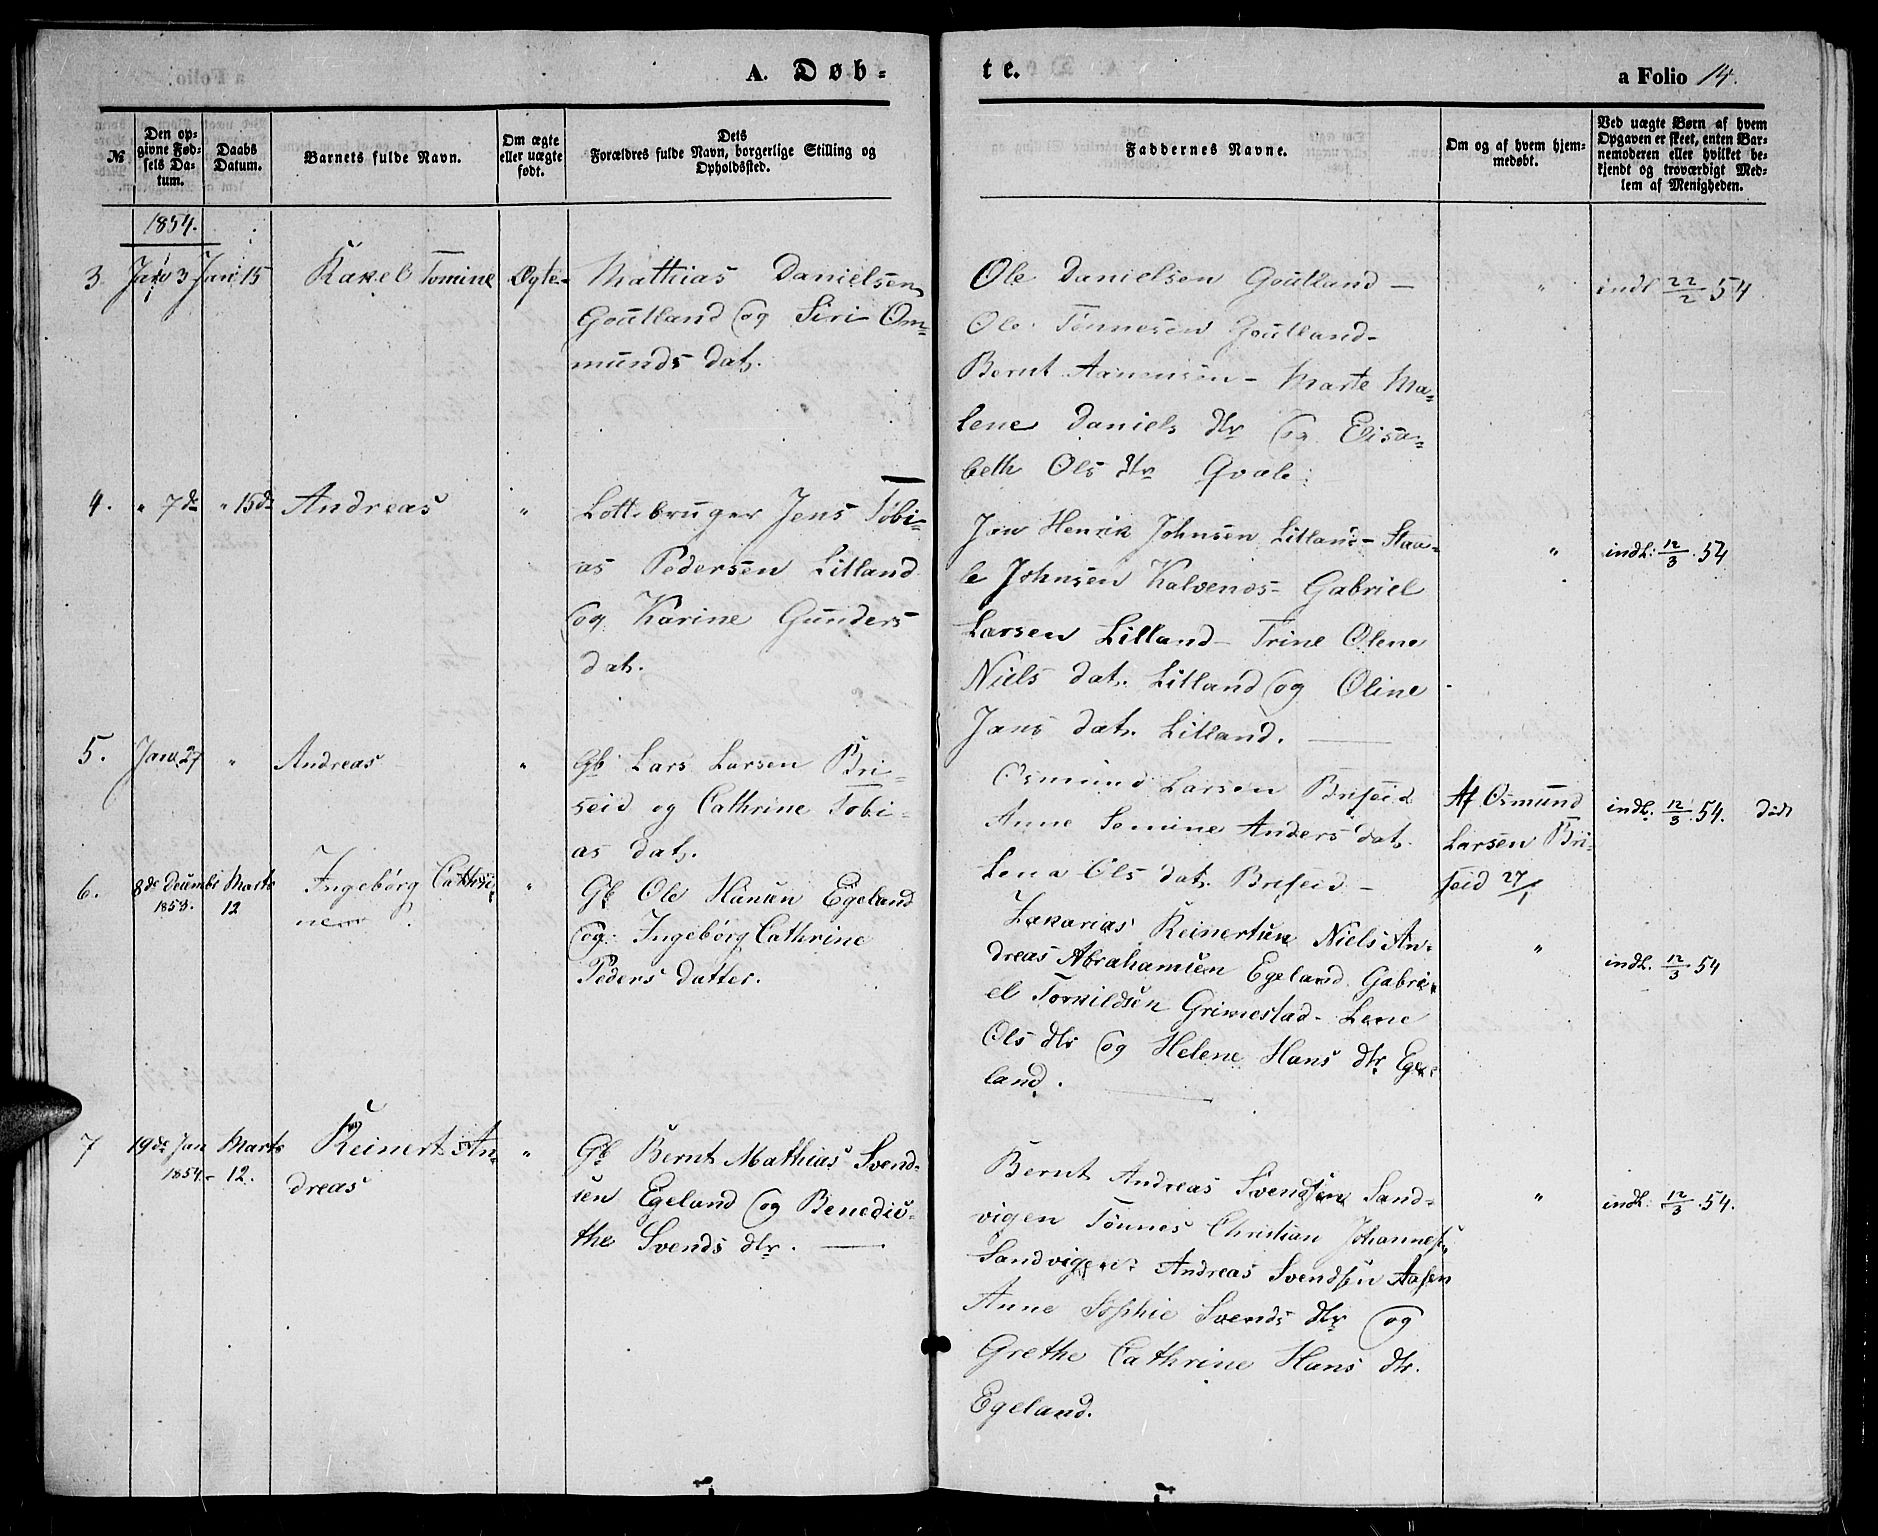 A. Døb- te. a Folio 14.
№
Den op-
givne Fød-
sels Da-
tum.
Daabs
Datum.
Barnets fulde Navn.
Om ægte
eller uægte
født.
Dets
Forældres fulde Navn, borgerlige Stilling og
Opholdssted.
Faddernes Navne.
Om og af hvem hjem-
medøbt.
Ved uægte Børn af hvem
Opgaven er skeet, enten Bar-
nemoderen eller hvilket be-
kjendt og troværdigt Med-
lem af Menigheden.
1854.
3. Jan 3 Jan 15 Karel Tomine Ægte-
Mathias Danielsen
Goutland og Siri Om-
munds dat.
Ole Danielsen Goutland -
Ole Tønnesen Goutland-
Bernt Aanensen - Marte Ma-
lene Daniels dtr og Elisa-
beth Ols dtr Qvale.
" indl 22/2 54
4. " 7de " 15de Andreas "
Lottsbruger Jens Tobi-
as Pedersen Litland
og Karine Gunders
dat.
Jan Henrik Johnsen Litland - Staa-
le Johnsen Kalvenes - Gabriel
Larsen Litland - Trine Olene
Niels dat. Litland og Oline
Jans dat. Litland.
" indl: 12/3 54
5. Jan 27 " Andreas "
Gb Lars Larsen Bri-
seid og Cathrine Tobi-
as dat.
Osmund Larsen Briseid
Anne Semine Anders dat.
Lena Ols dat. Briseid -
Af Osmund
Larsen Bri-
seid 27/1
indl. 12/3 54. død
6. 8de Decembr
1853.
Marts
12
Ingebørg Cathri-
ne "
Gb Ole Hansen Egeland
og Ingebørg Cathrine
Peders datter.
Zakarias Reinertsen Niels An-
dreas Abrahamsen Egeland Gabri-
el Torkildsen Grimestad - Lene
Ols dtr og Helene Hans dtr Ege-
land.
" indl. 12/3 54
7 19de Jan
1854.-
Marts
12.
Reinert An-
dreas "
Gb Bernt Mathias Svend-
sen Egeland og Benedic-
the Svends dtr.
Bernt Andreas Svendsen Sand-
vigen Tønnes Christian Johannes.
Sandvigen Andreas Svendsen Aasen
Anne Sophie Svends dtr og
Grethe Cathrine Hans dtr.
Egeland.
" indl. 12/3 54.